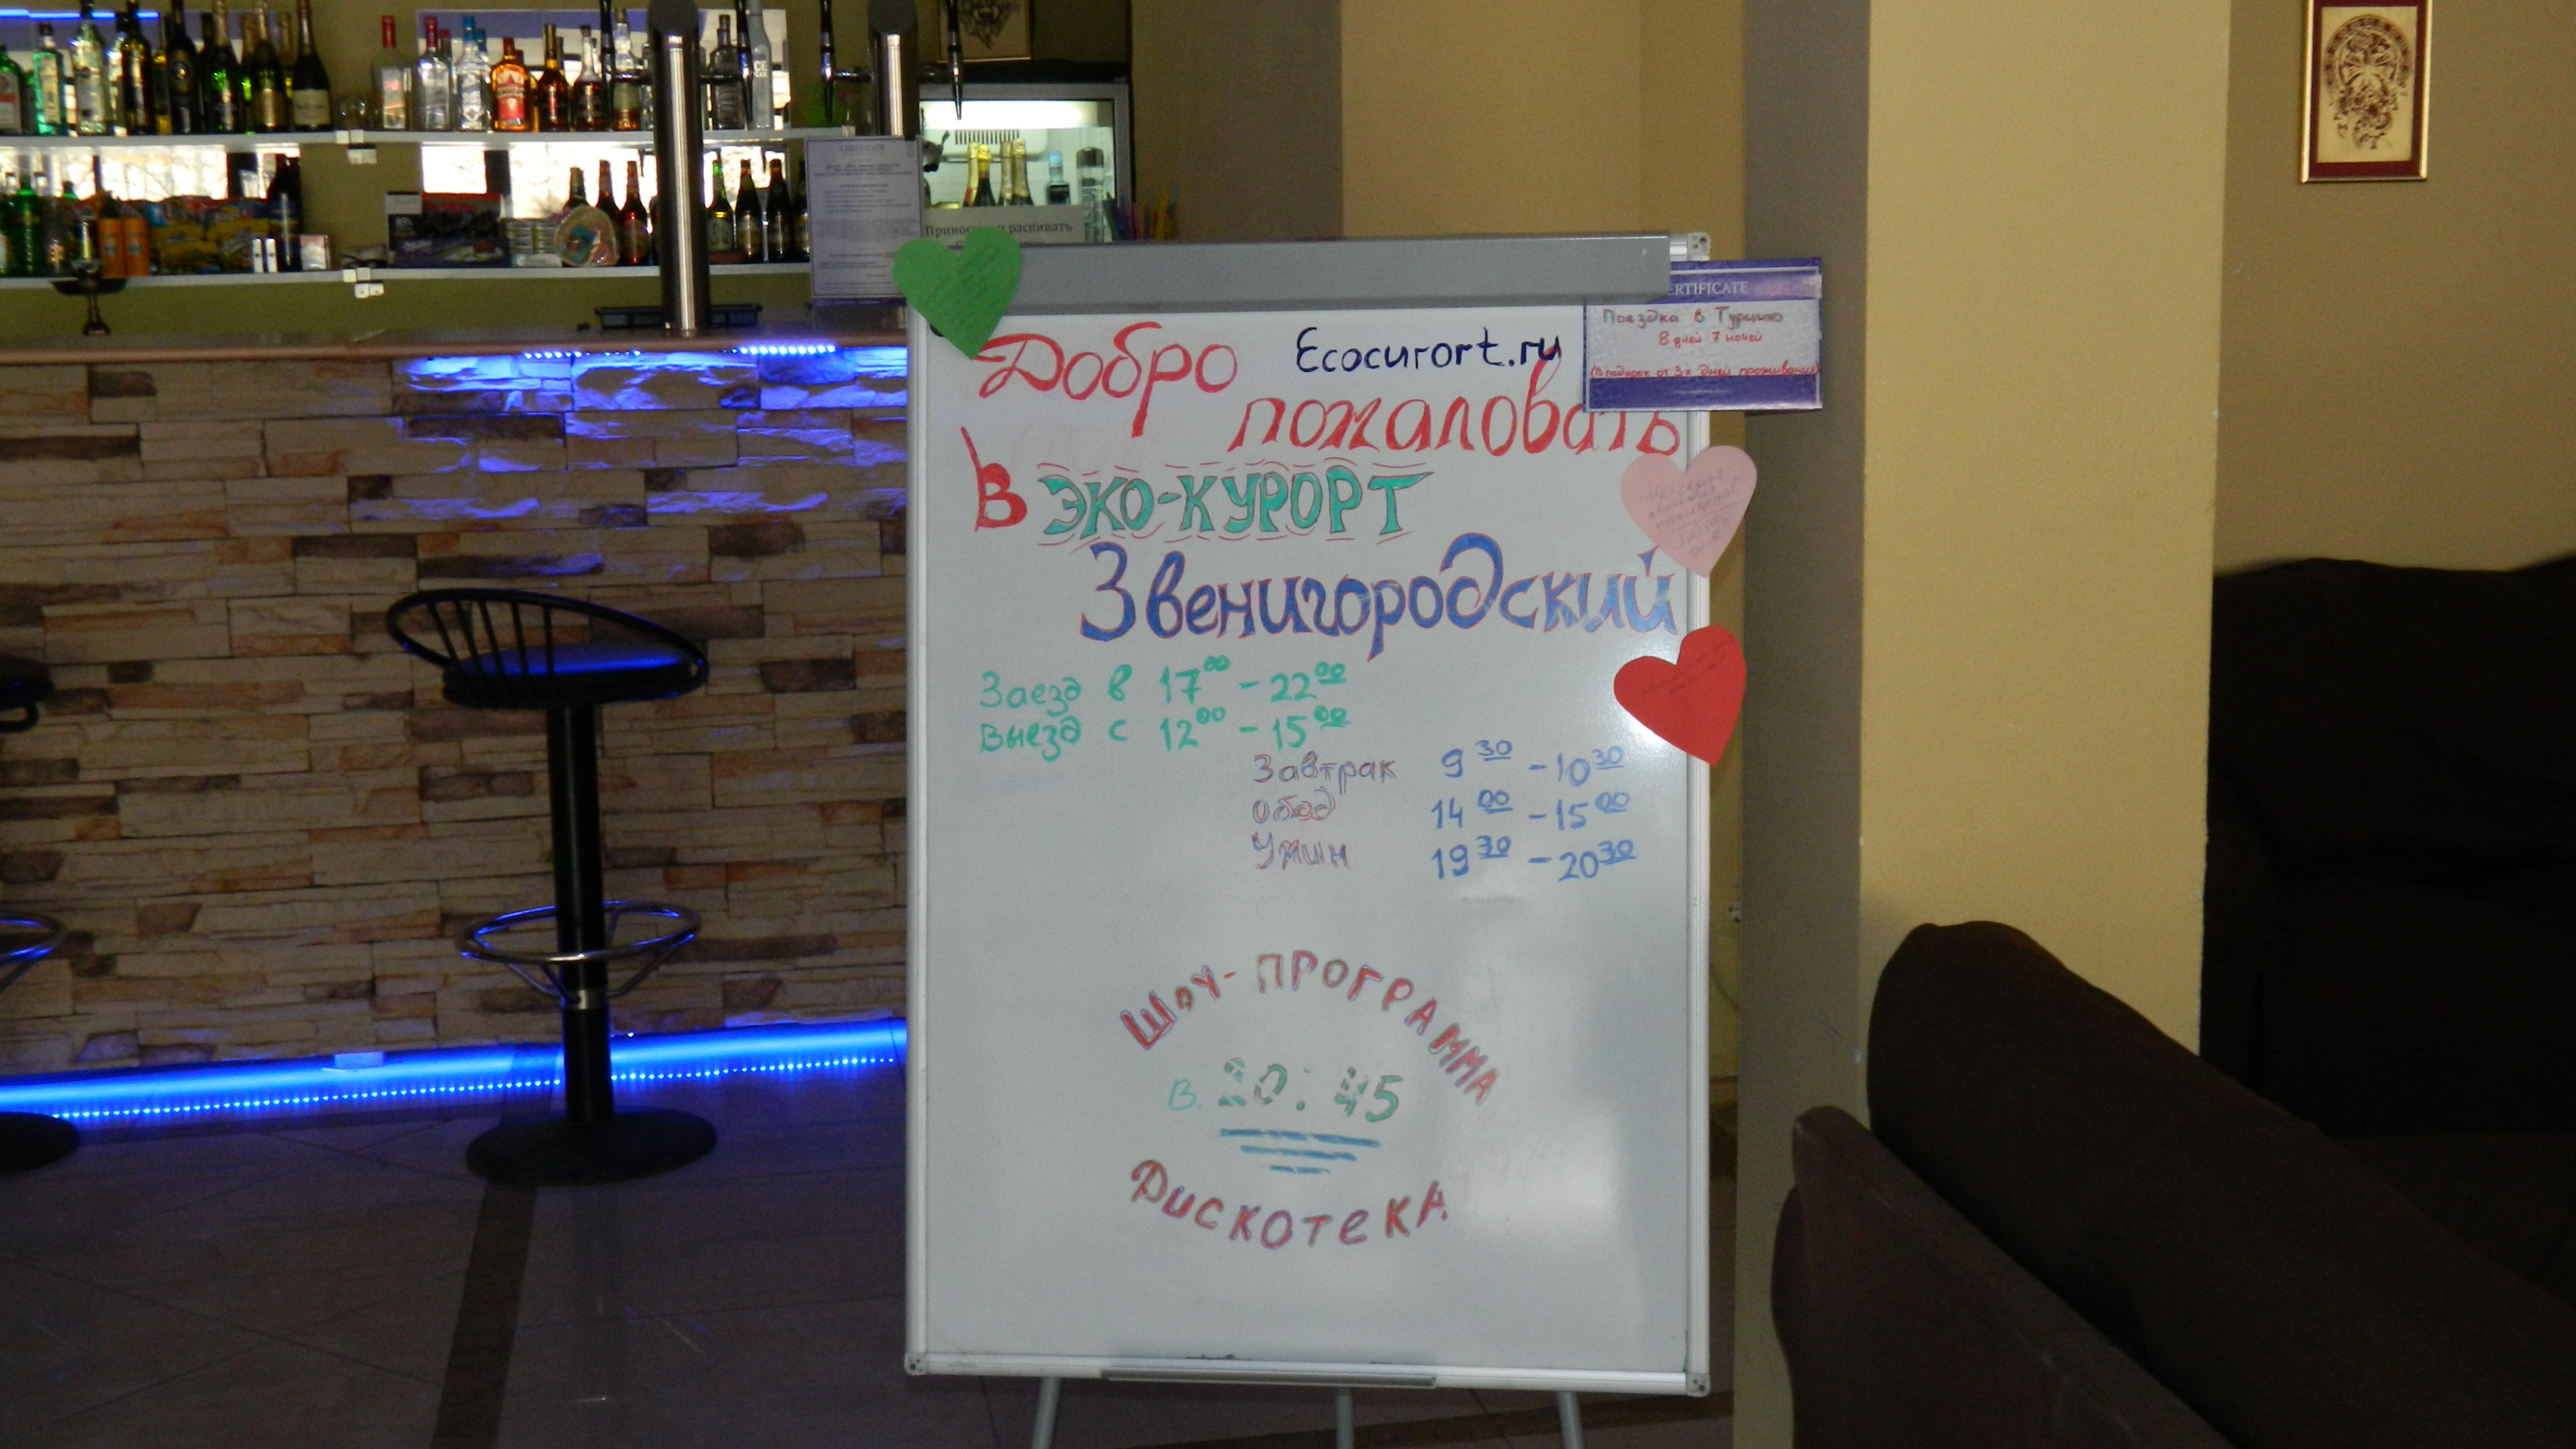 CERTIFICATE
Приносить и распивать
ERTIFICATE
Поездка в Турцию
8 дней 7 ночей
(В подарок от 3х дней проживания)
Добро Ecocurort.ru
пожаловать
В ЭКО-КУРОРТ
Звенигородский
Заезд в 17⁰⁰ - 22⁰⁰
Выезд с 12⁰⁰ - 15⁰⁰
Завтрак 9³⁰ - 10³⁰
Обед 14⁰⁰ - 15⁰⁰
Ужин 19³⁰ - 20³⁰
Шоу-ПРОГРАММА
В. 20:45
Дискотека